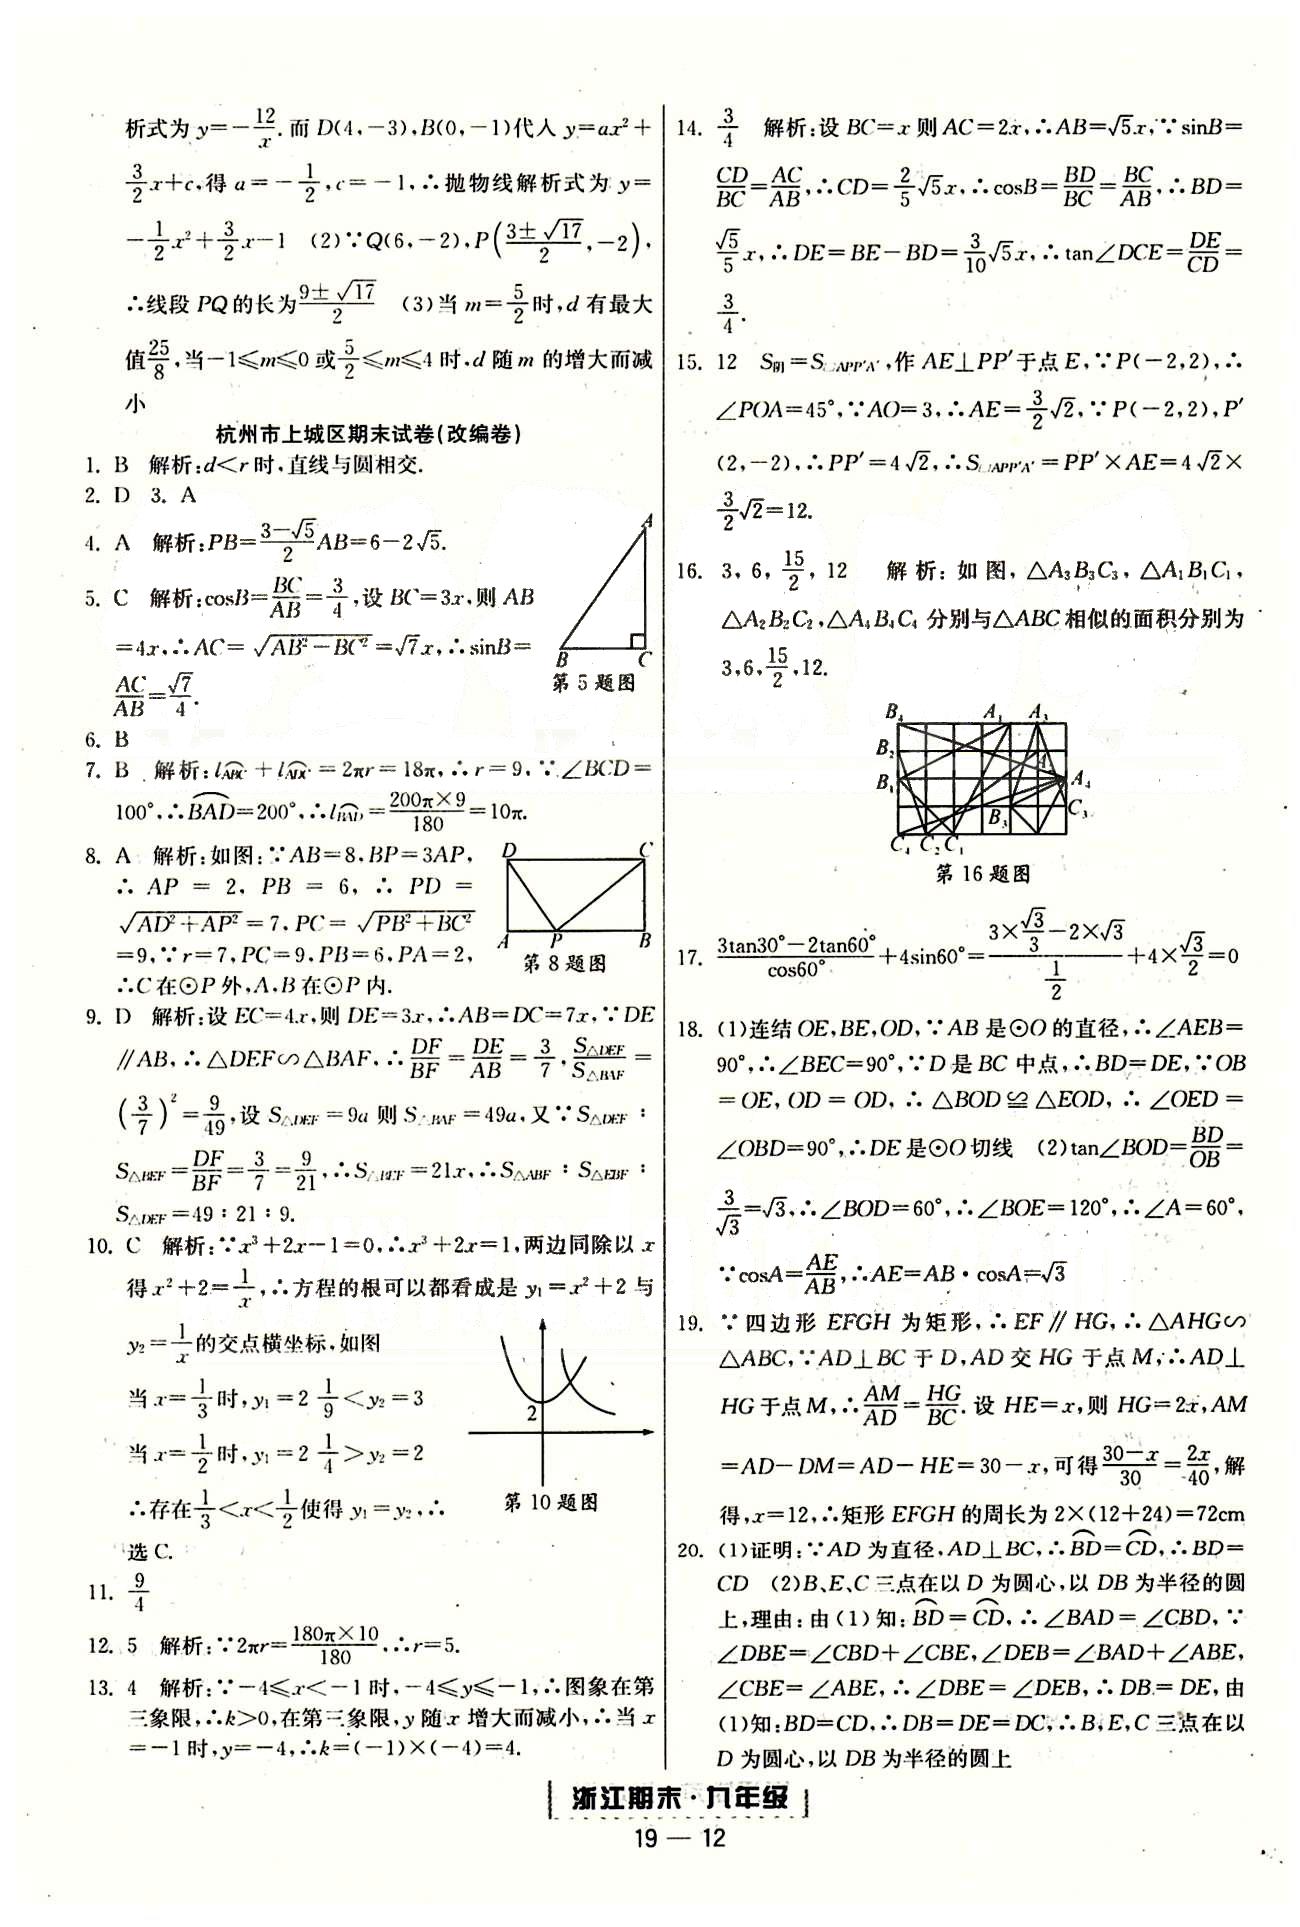 析式为 y=-12/x. 而 D(4,-3),B(0,-1)代入 y=ax²+
3/2x+c,得 a=-1/2,c=-1,∴抛物线解析式为 y=
-1/2x²+3/2x-1 (2)∵Q(6,-2),P((3±√17)/2,-2),
∴线段 PQ 的长为(9±√17)/2 (3)当 m=5/2时,d 有最大
值25/8,当-1≤m≤0 或5/2≤m≤4 时,d 随 m 的增大而减
小
杭州市上城区期末试卷(改编卷)
1. B 解析:d<r 时,直线与圆相交.
2. D 3. A
4. A 解析:PB=(3-√5)/2AB=6-2√5.
5. C 解析:cosB=BC/AB=3/4,设 BC=3x,则 AB
=4x,∴AC=√(AB²-BC²)=√7x,∴sinB=
AC/AB=√7/4.
A
B C
第 5 题图
6. B
7. B 解析:l⌒ABC+l⌒ADC=2πr=18π,∴r=9,∵∠BCD=
100°,∴⌒BAD=200°,∴l⌒BAD=(200π×9)/180=10π.
8. A 解析:如图:∵AB=8,BP=3AP,
∴AP = 2, PB = 6, ∴ PD =
√(AD²+AP²)=7,PC=√(PB²+BC²)
=9,∵r=7,PC=9,PB=6,PA=2,
∴C在⊙P外,A,B在⊙P内.
D C
A P B
第 8 题图
9. D 解析:设 EC=4x,则 DE=3x,∴AB=DC=7x,∵DE
∥AB,∴△DEF∽△BAF,∴DF/BF=DE/AB=3/7,S△DEF/S△BAF=
(3/7)²=9/49,设 S△DEF=9a 则 S△BAF=49a,又∵S△DEF :
S△BEF=DF/BF=3/7=9/21,∴S△BEF=21x,∴S△ABF : S△EBF :
S△DEF=49 : 21 : 9.
10. C 解析:∵x³+2x-1=0,∴x³+2x=1,两边同除以 x
得 x²+2=1/x,∴方程的根可以都看成是 y₁=x²+2 与
y₂=1/x的交点横坐标,如图
当 x=1/3时,y₁=2 1/9<y₂=3
当 x=1/2时,y₁=2 1/4>y₂=2
∴存在1/3<x<1/2使得 y₁=y₂,∴
选 C.
2
第 10 题图
11. 9/4
12. 5 解析:∵2πr=(180π×10)/180,∴r=5.
13. 4 解析:∵-4≤x<-1 时,-4≤y≤-1,∴图象在第
三象限,∴k>0,在第三象限,y 随 x 增大而减小,∴当 x
=-1 时,y=-4,∴k=(-1)×(-4)=4.
14. 3/4 解析:设 BC=x 则 AC=2x,∴AB=√5x,∵sinB=
CD/BC=AC/AB,∴CD=2/5√5x,∴cosB=BD/BC=BC/AB,∴BD=
√5/5x,∴DE=BE-BD=3/10√5x,∴tan∠DCE=DE/CD=
3/4.
15. 12 S阴=S□APP'A',作 AE⊥PP'于点 E,∵P(-2,2),∴
∠POA=45°,∵AO=3,∴AE=3/2√2,∵P(-2,2),P'
(2,-2),∴PP'=4√2,∴S□APP'A'=PP'×AE=4√2×
3/2√2=12.
16. 3, 6, 15/2, 12 解析: 如图, △A₃B₃C₃, △A₁B₁C₁,
△A₂B₂C₂,△A₄B₄C₄ 分别与△ABC 相似的面积分别为
3,6,15/2,12.
B₄ A₁ A₃
B₂
B₁ A₄
B₃ C₃
C₄ C₂ C₁
第 16 题图
17. (3tan30°-2tan60°)/cos60°+4sin60°=(3×√3/3-2×√3)/(1/2)+4×√3/2=0
18. (1)连结 OE,BE,OD,∵AB 是⊙O 的直径,∴∠AEB=
90°,∴∠BEC=90°,∵D 是 BC 中点,∴BD=DE,∵OB
=OE,OD=OD,∴△BOD≌△EOD,∴∠OED=
∠OBD=90°,∴DE 是⊙O 切线 (2)tan∠BOD=BD/OB=
3/√3=√3,∴∠BOD=60°,∴∠BOE=120°,∴∠A=60°,
∵cosA=AE/AB,∴AE=AB·cosA=√3
19. ∵四边形 EFGH 为矩形,∴EF∥HG,∴△AHG∽
△ABC,∵AD⊥BC 于 D,AD 交 HG 于点 M,∴AD⊥
HG 于点 M,∴AM/AD=HG/BC. 设 HE=x,则 HG=2x,AM
=AD-DM=AD-HE=30-x,可得(30-x)/30=2x/40,解
得,x=12,∴矩形 EFGH 的周长为 2×(12+24)=72cm
20. (1)证明:∵AD 为直径,AD⊥BC,∴⌒BD=⌒CD,∴BD=
CD (2)B、E、C 三点在以 D 为圆心,以 DB 为半径的圆
上,理由:由(1)知:⌒BD=⌒CD,∴∠BAD=∠CBD,∵
∠DBE=∠CBD+∠CBE,∠DEB=∠BAD+∠ABE,
∠CBE=∠ABE,∴∠DBE=∠DEB,∴DB=DE,由
(1)知:BD=CD,∴DB=DE=DC,∴B,E,C 三点在以
D 为圆心,以 DB 为半径的圆上
浙江期末·九年级
19 — 12